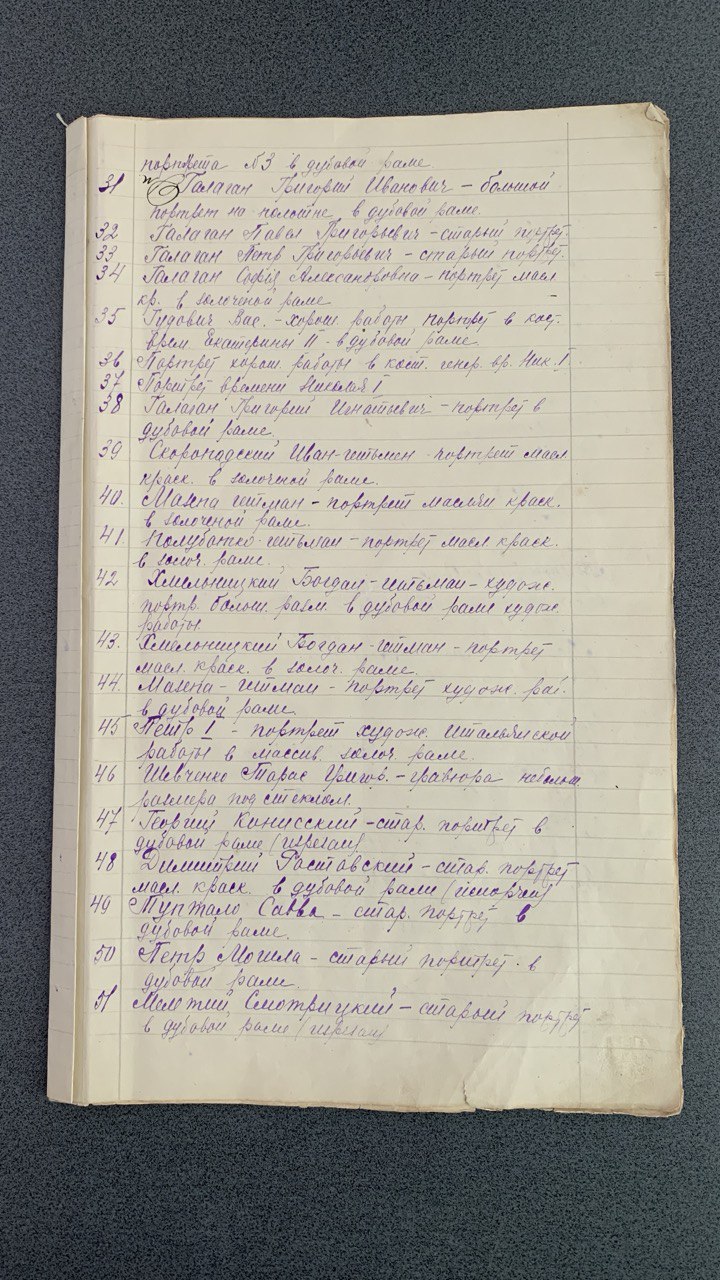 портрета №3 в дубовой раме
31 Галаган Григорий Иванович - большой
портрет на полотне в дубовой раме.
32 Галаган Павел Григорьевич - старый портрет.
33 Галаган Петр Григорьевич - старый портрет.
34 Галаган София Александровна - портрет масл
кр. в золоченой раме
35 Гудович Вас. - хорош. работы портрет в кост.
врем. Екатерины II - в дубовой раме.
36 Портрет хорош. работы в кост. генер. вр. Ник. I
37 Портрет времени Николая I
38 Галаган Григорий Игнатьевич - портрет в
дубовой раме.
39 Скоропадский Иван - гетьман портрет масл
краск. в золочной раме.
40. Мазепа гетман - портрет маслян краск.
в золоченой раме.
41. Полуботко гетьман - портрет масл краск.
в золоч. раме.
42 Хмельницкий Богдан - гетьман - худож.
портр. больш. разм. в дубовой раме худож
работы
43. Хмельницкий Богдан - гетман - портрет
масл. краск. в золоч. раме.
44. Мазепа - гетман - портрет худож. раб.
в дубовой раме.
45 Петр I - портрет худож. итальянской
работы в массив. золоч. раме.
46 Шевченко Тарас Григор. - гравюра неболш.
размера под стеклом.
47 Георгий Конисский - стар. портрет в
дубовой раме (изрезан)
48 Димитрий Ростовский - стар. портрет
масл. краск. в дубовой раме (испорчен)
49 Туптало Савва - стар. портрет в
дубовой раме.
50 Петр Могила - старый портрет в
дубовой раме.
51 Мелетий Смотрицкий - старый портрет
в дубовой раме (изрезан)